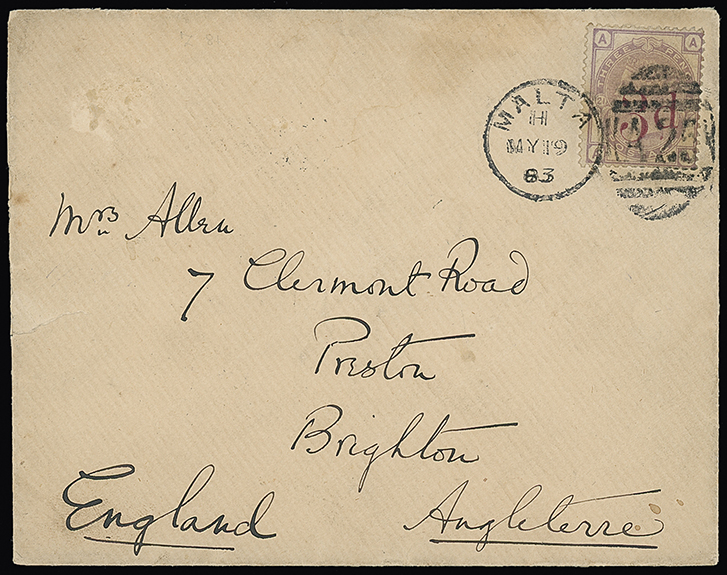 A THREE PENCE A
3d
MALTA
H
MY 19
83
A25
Mrs Allen
7 Clermont Road
Preston
Brighton
England Angleterre